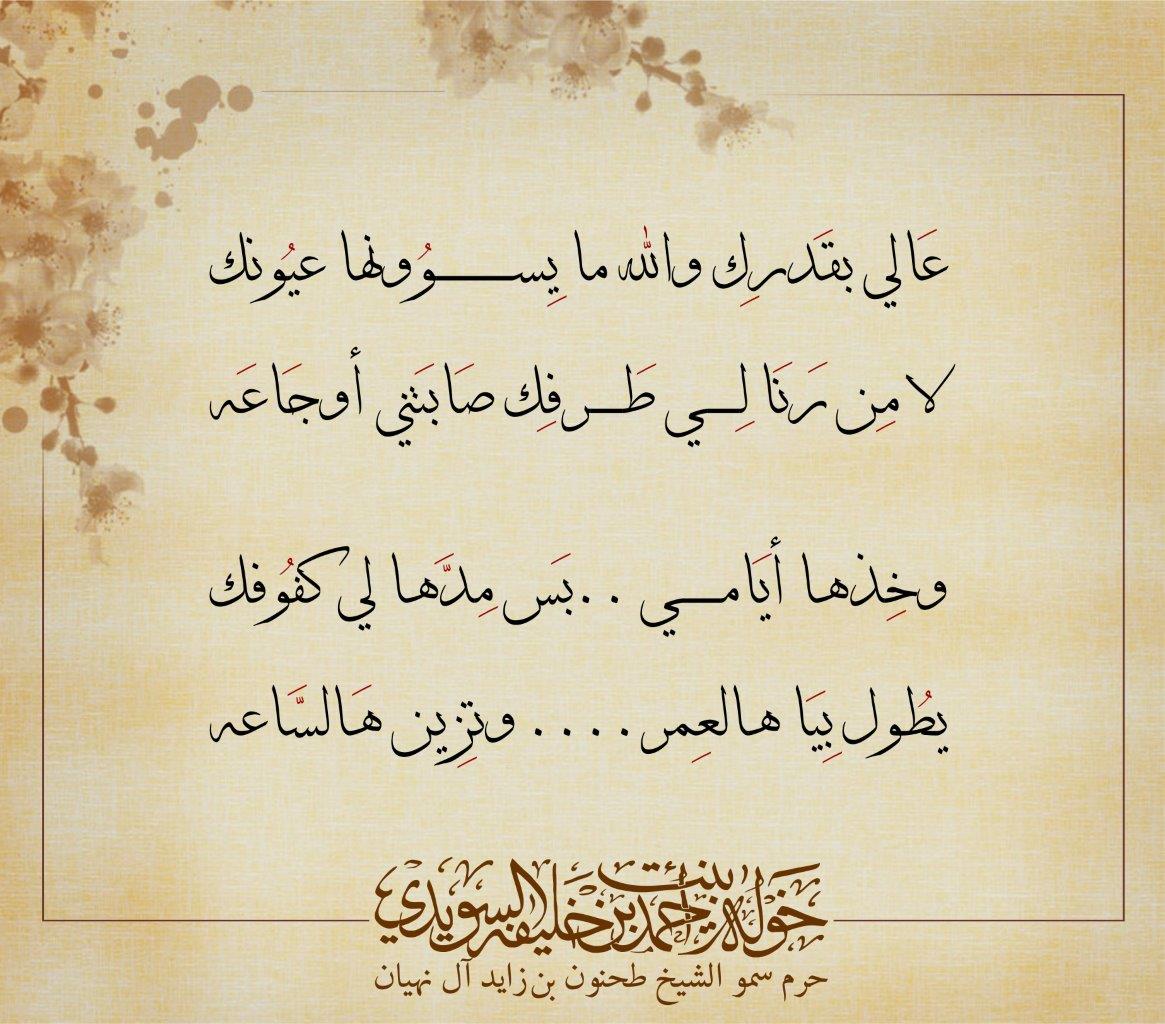 عَالي بقَدرِك والله ما يِســـوُونها عيُونك
لا مِن رَنَا لِـي طَـرفِك صَابَتني أوجَاعَه
وخِذها أيَامـي . .. بَس مِدَّها لي كفُوفك
يطُول بِيَا هالعِمر . . . . وتزِين هَالسَّاعه
خوله بنت أحمد بن خليفه السويدي
حرم سمو الشيخ طحنون بن زايد آل نهيان